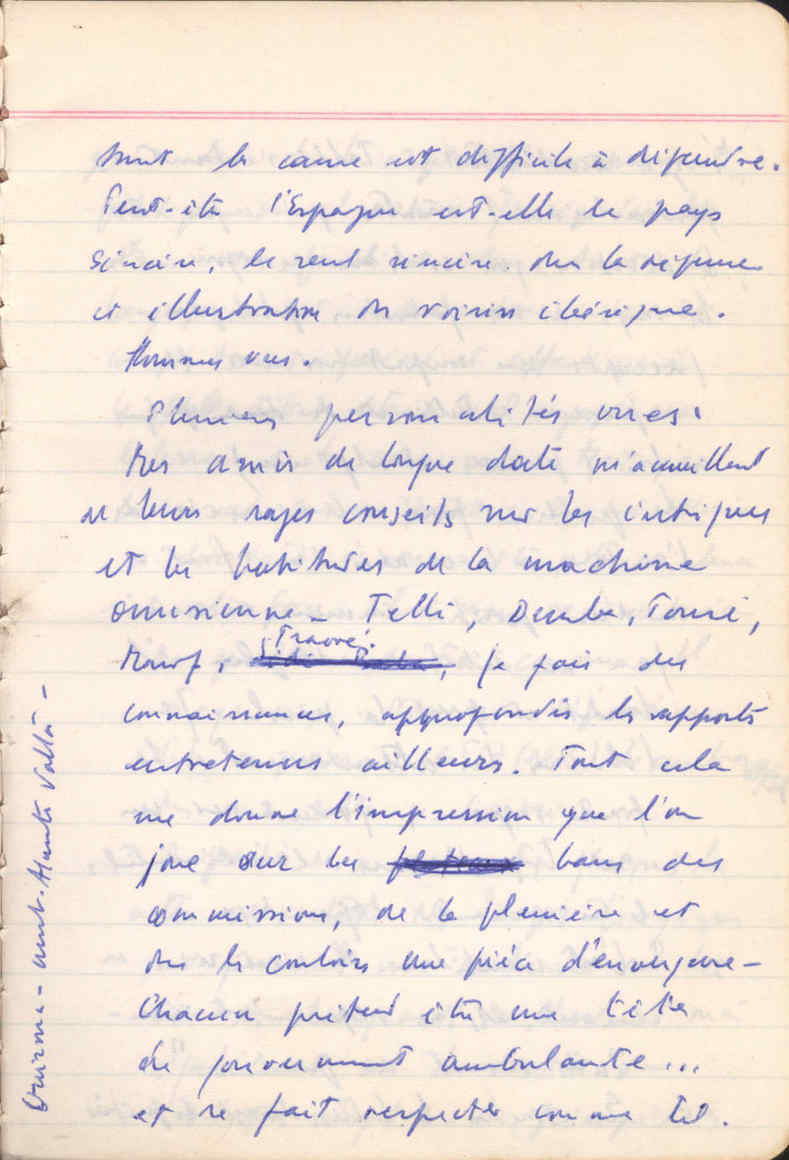 dont la cause est difficile à défendre.
Peut-être l'Espagne est-elle le pays
sincère, le seul sincère. dans la défense
et illustration du voisin ibérique.
Hommes vus.
Plusieurs personnalités vues.
Mes amis de longue date m'accueillent
de leurs sages conseils sur les intrigues
et les habitudes de la machine
onusienne - Telli, Demba, Touré,
Traoré.
je fais des
connaissances, approfondis les rapports
entretenus ailleurs. Tout cela
me donne l'impression que l'on
joue sur les bancs des
commissions, de la plénière et
dans les couloirs une pièce d'envergure -
Chacun prétend être une tête
de gouvernement ambulante...
et se fait respecter comme tel.
- amb. Haute Volta -